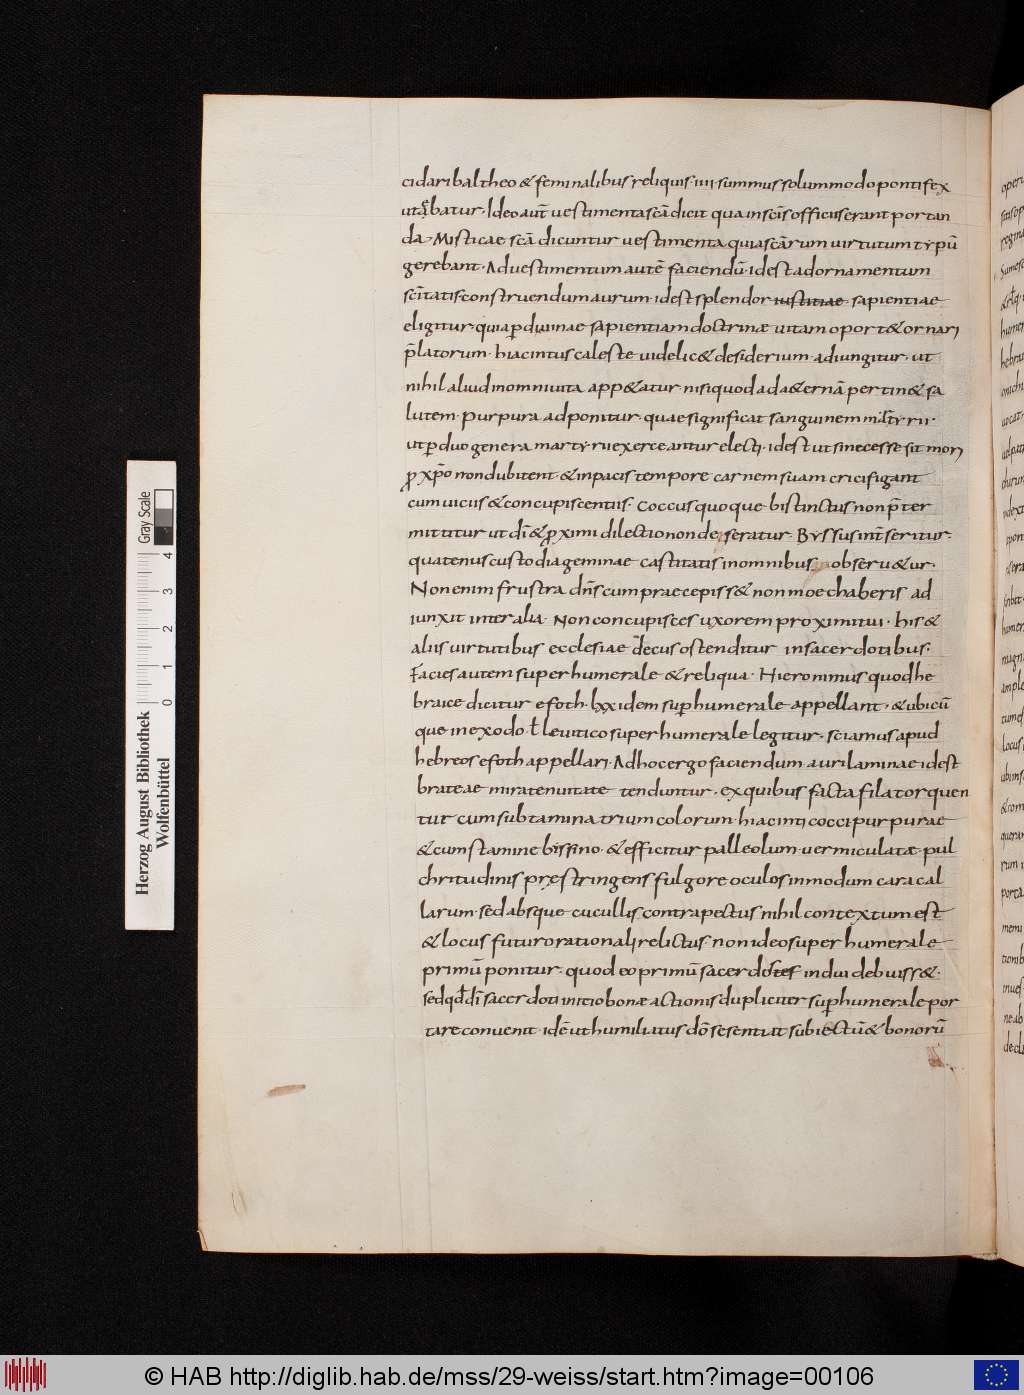 cidari baltheo & feminalibus reliquis· iiii· summus solummodo pontifex
utebatur· Ideo aut̄ uestimenta sc̄a dicit qua in sc̄is officiis erant portan
da· Misticae sc̄a dicuntur uestimenta quia sc̄arum uirtutum typū
gerebant· Ad uestimentum autē faciendū· id est adornamentum
sc̄itatis construendum aurum· id est splendor iustitiae sapientiae
eligitur· quia p̱ diuinae sapientiam doctrinæ uitam oport& ornari
p̄latorum· hiacintus caleste uidelic& desiderium· adiungitur· ut
nihil aliud in omni uita app&atur nisi quod ad a&ernā pertin& sa
lutem· purpura adponitur· quae significat sanguinem martyrii·
ut p̱ duo genera martyrii exerceantur electi· id est ut si necesse sit mori
ꝓ xp̄o non dubitent· & in pacis tempore carnem suam cricifigant
cum uiciis & concupiscentiis· Coccus quoque· bis tinctus non p̄ter
mittitur ut dī & ꝓximi dilectio non deseratur· Byssus int̄seritur·
quatenus custodia geminae castitatis in omnibus obseru&ur·
Non enim frustra dn̄s cum praecepiss& non moechaberis ad
iunxit inter alia· Non concupisces uxorem proximi tui· his &
aliis uirtutibus ecclesiae decus ostenditur in sacerdotibus·
Facies autem super humerale & reliqua· Hieronimus quod he
braice dicitur efoth· lxx idem sup̱ humerale appellant· & ubicū
que in exodo ł leuitico super humerale legitur· sciamus apud
hebreos efoth appellari· Ad hoc ergo faciendum auri laminae id est
brateae mira tenuitate tenduntur· ex quibus facta fila torquen
tur cum subtamina trium colorum· hiacinti cocci purpurae
& cum stamine bissino· & efficitur palleolum· uermiculatæ pul
chritudinis præstringens fulgore oculos in modum caracal
larum· sed absque cucullis contra pectus nihil contextum est
& locus futuro rationali relictus· non ideo super humerale
primū ponitur· quod eo primū sacerdotes indui debuiss&·
sed qđ dī sacerdoti initio bonæ actionis dupliciter sup̱ humerale por
tare conuenit· idē ut humiliatus dō se sentiat subiectū & bonorū
Herzog August Bibliothek
Wolfenbüttel
Gray Scale
0 1 2 3 4
© HAB http://diglib.hab.de/mss/29-weiss/start.htm?image=00106